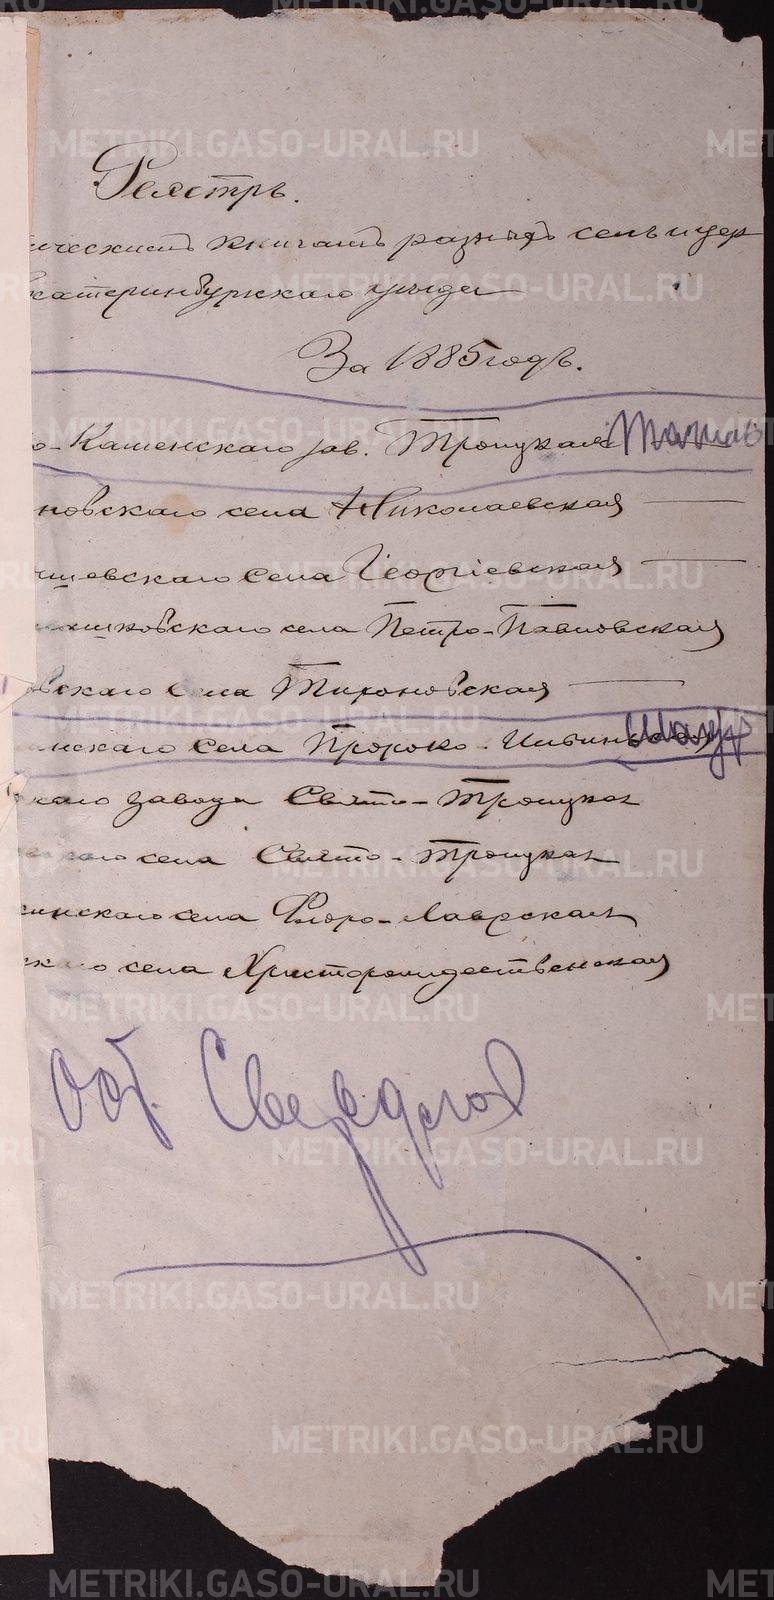 Реестръ.
ическимъ книгамъ разныхъ селъ и цер
катеринбурскаго уѣзда
За 1885 годъ.
о-Каменскаго зав. Троицкая
новскаго села Николаевская
чищевскаго села Георгіевская
села Петро-Павловская
овскаго села Тихоновская
инскаго села Пророко-Ильинская
скаго завода Свято-Троицкая
скаго села Свято-Троицкая
синскаго села Флоро-Лаврская
скаго села Христорождественская
обл. Свердлов
METRIKI.GASO-URAL.RU